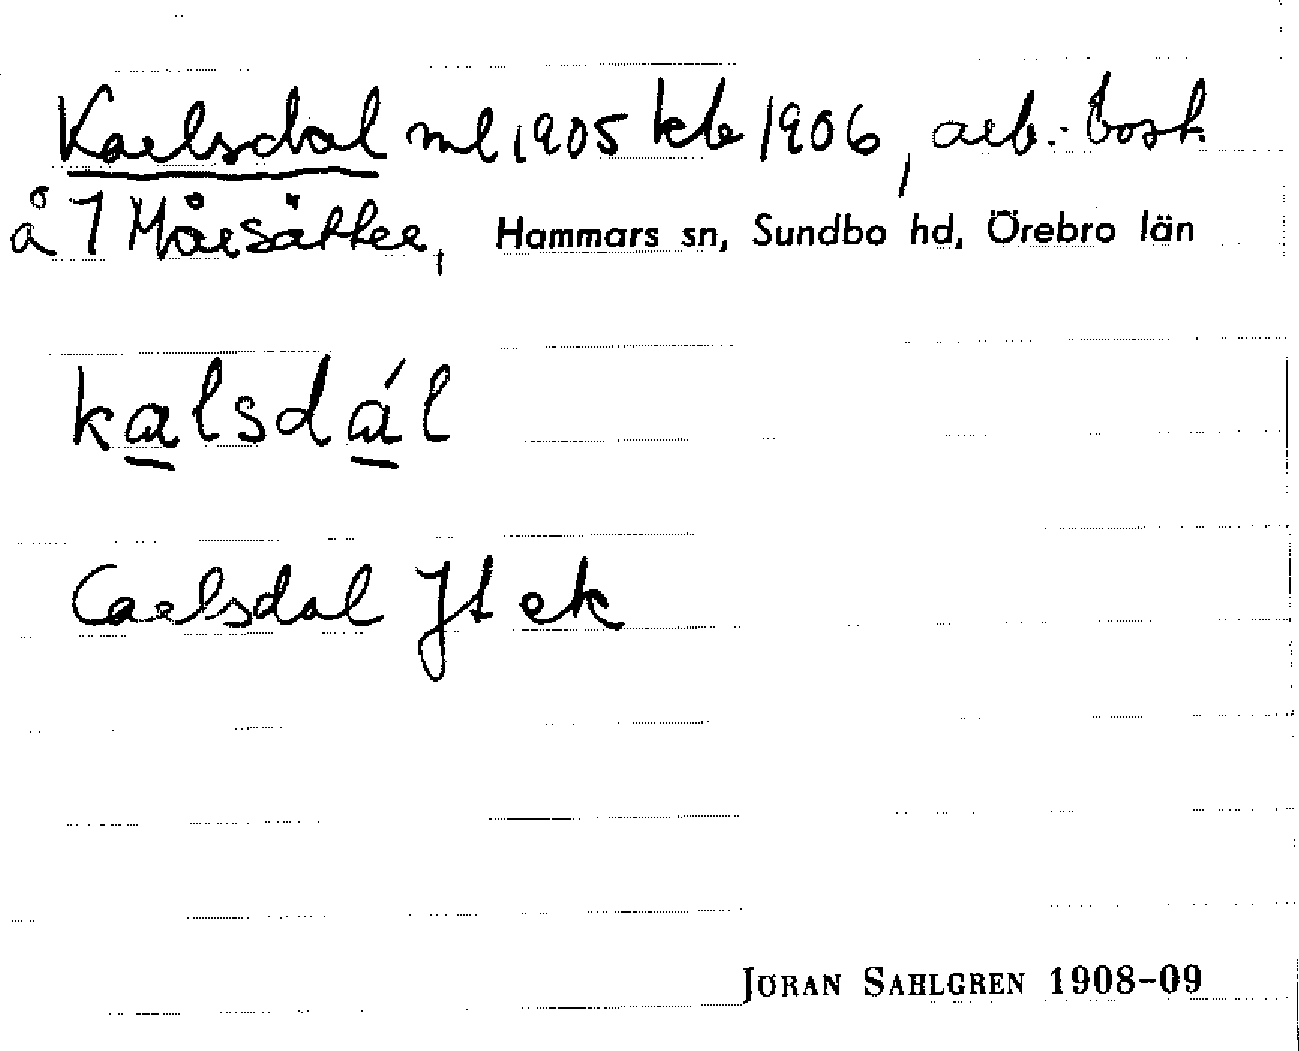 Karlsdal ml 1905 kb 1906, arb.-bost.
å 1 Mårsätter, Hammars sn, Sundbo hd, Örebro län
kalsdál
Carlsdal Jt ek
JÖRAN SAHLGREN 1908–09